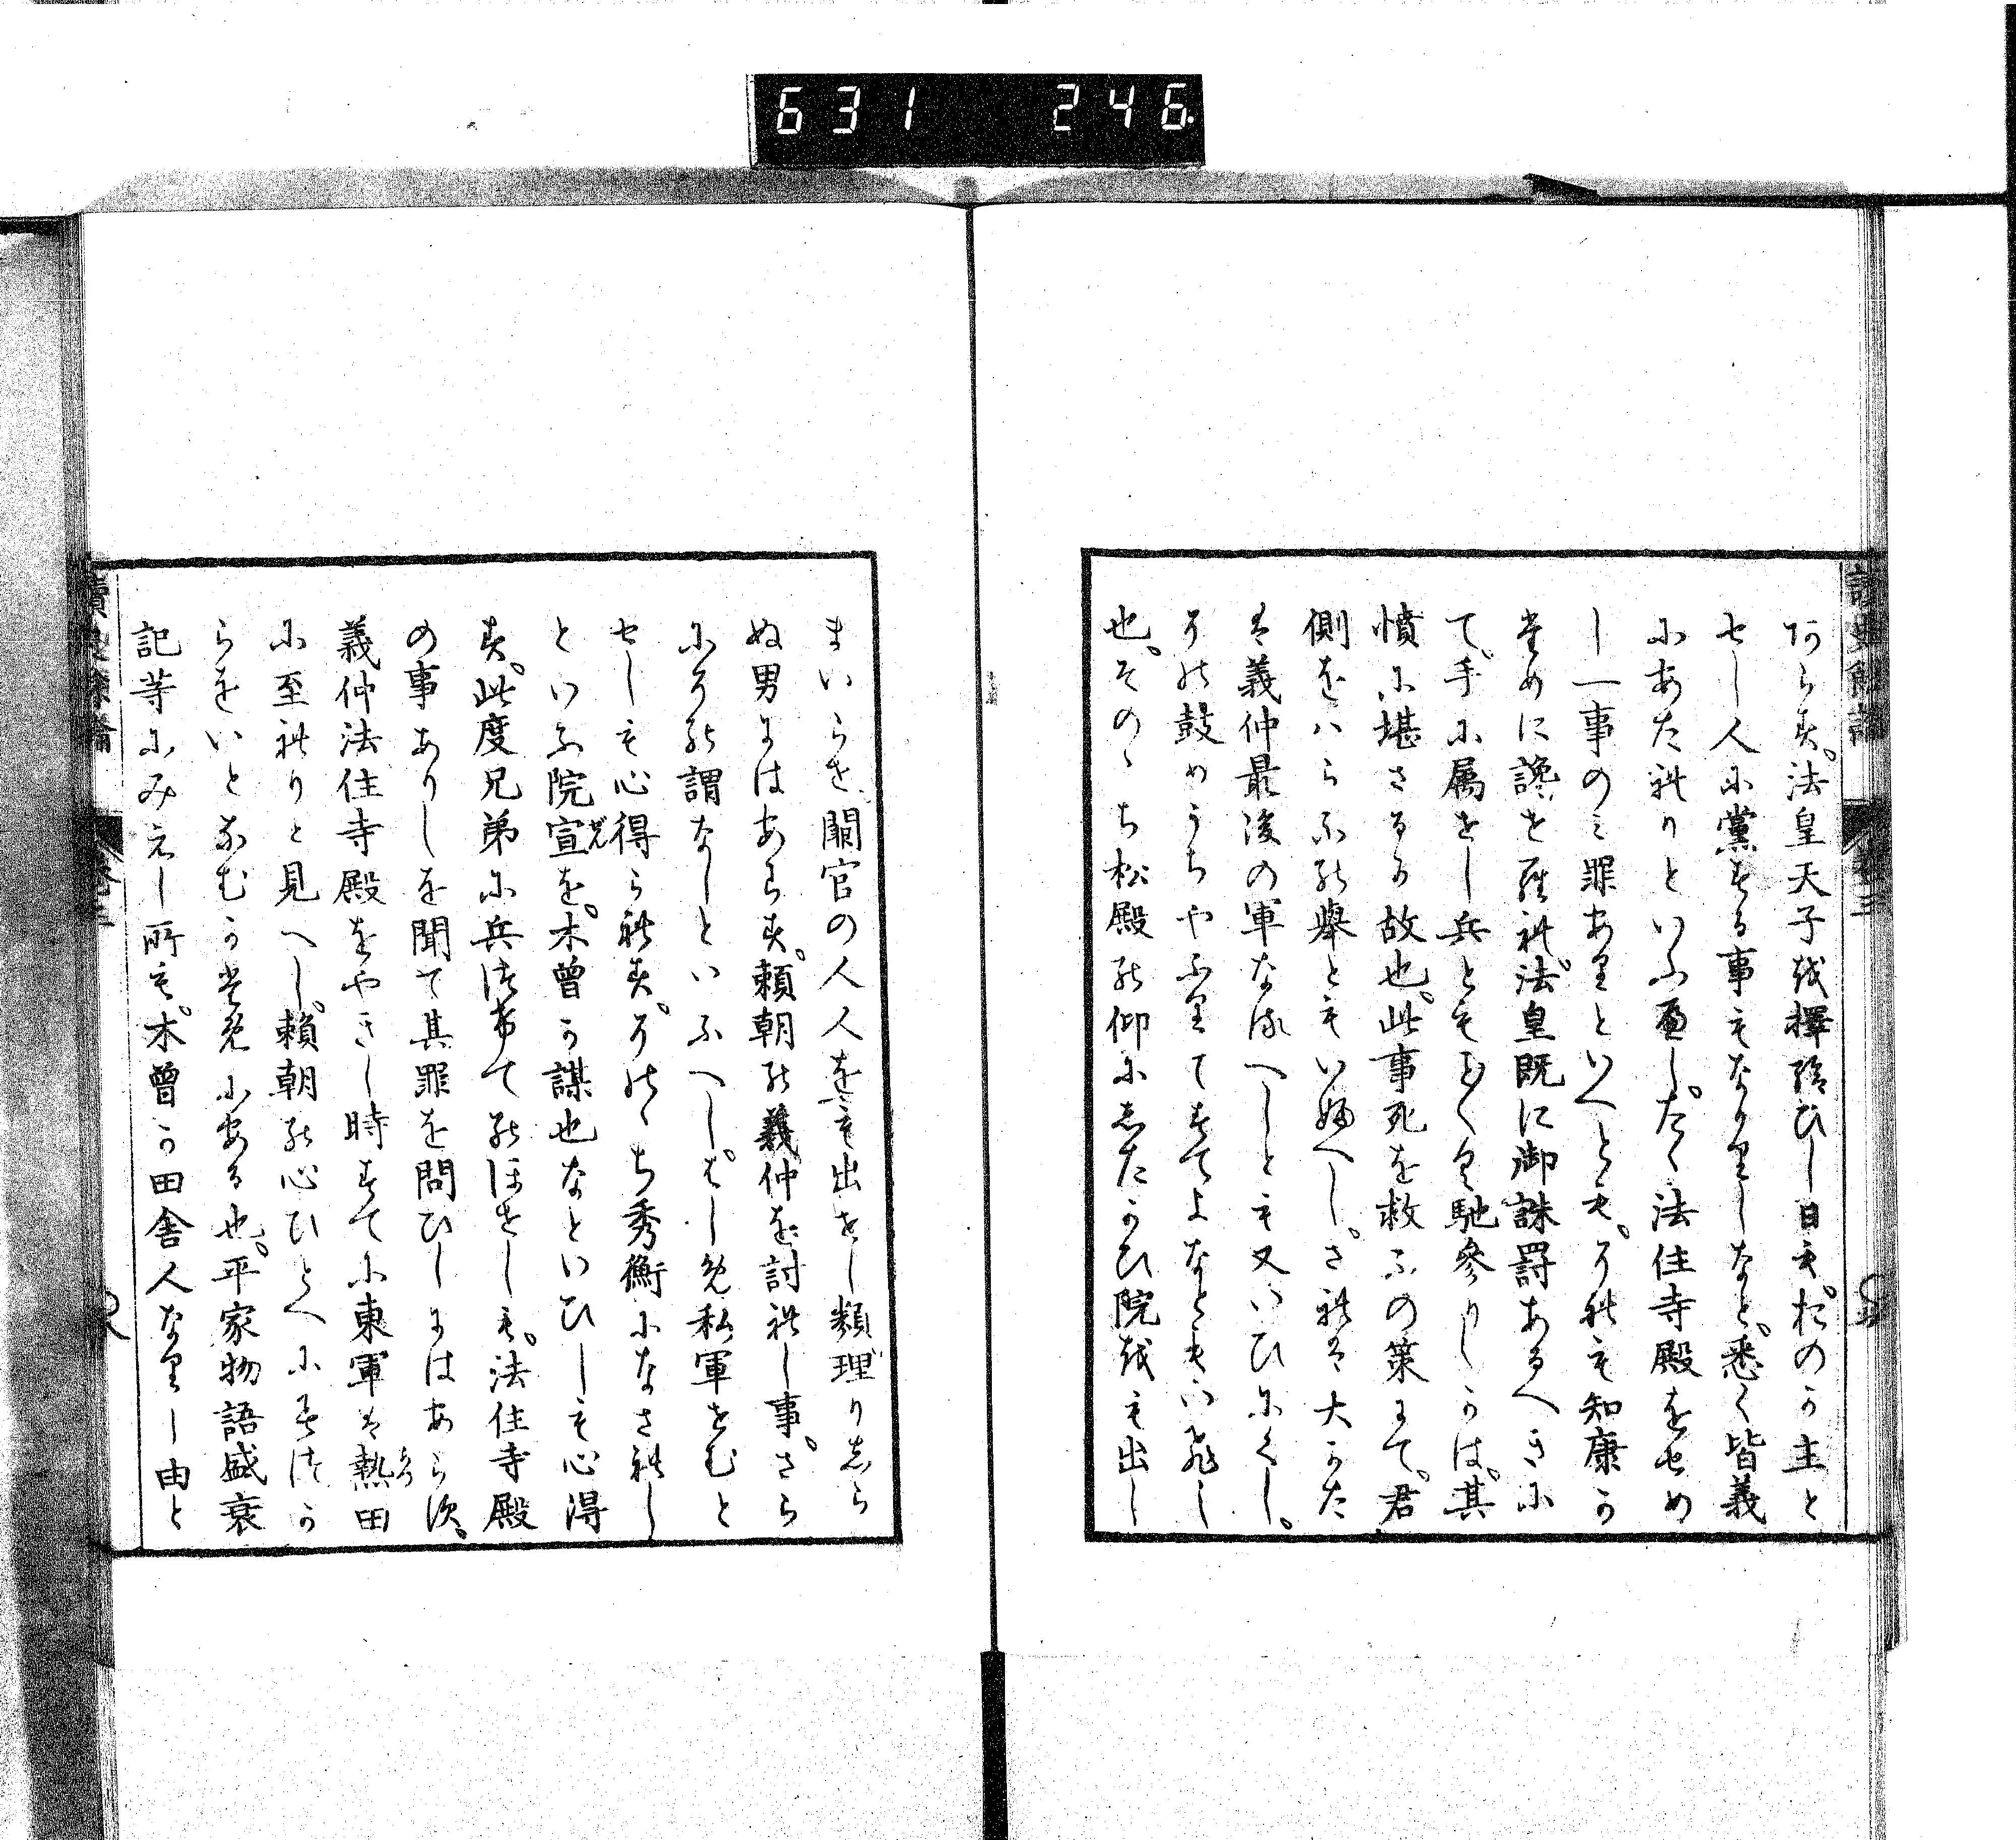 631 246.
讀史餘論 卷三
あらす。法皇天子を擇給ひし日も。おのか主と
せし人に黨する事もなかりしなと。悉く皆義
にあたれりといふへし。たゝ法住寺殿をせめ
し一事のミ罪ありといへとも。それも知康か
ために讒せられ。法皇既に御誅罰あるへきに
て。手に属せし兵ともことく馳參りしかは。其
憤に堪さるか故也。此事死を救ふの策にて。君
側をはらふの擧ともいふへし。されは大かた
は義仲最後の軍なるへしとも又いひにくし。
その鼓めうちやふりてすてよなとはいひし
也。そのゝち松殿の仰にしたかひ院をも出し
まいらせ。闕官の人人をも出せし類理りしら
ぬ男にはあらす。頼朝の義仲を討れし事。さら
にその謂なしといふへし。はしめ私軍せむと
せしも心得られす。そのゝち秀衡になされし
といふ院宣を。木曽か謀也なといひしも心得
す。此度兄弟に兵つけてのほせしも。法住寺殿
の事ありしを聞て其罪を問ひしにはあらす。
義仲法住寺殿をやきし時すてに東軍は熱田
に至れりと見へし。頼朝の心ひとへにみつか
らをいとなむかために出る也。平家物語盛衰
記等にみえし所も。木曽か田舎人なりし由と
讀史餘論 卷三